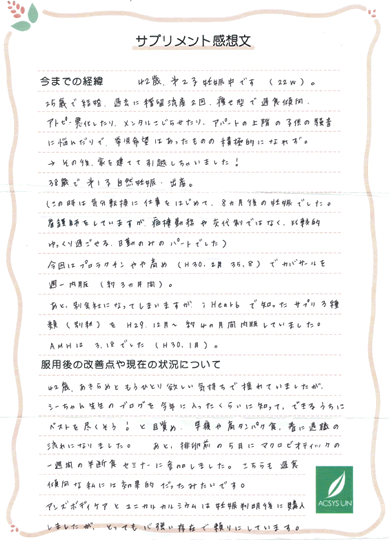 サプリメント感想文
今までの経緯 42歳、第2子妊娠中です（22w）。
25歳で結婚、過去に稽留流産2回、痩せ型で過食傾向、
アトピー悪化したり、メンタルこじらせたり、アパートの上階の子供の騒音
に悩んだりで、挙児希望はあったものの積極的になれず。
→その後、家を建てて引越しちゃいました！
38歳で第1子自然妊娠・出産。
（この時は気分転換に仕事をはじめて、8ヵ月後の妊娠でした。
看護師をしていますが、病棟勤務や交代制ではなく、比較的
ゆっくり過ごせる、日勤のみのパートでした）
今回はプロラクチンやや高め（H30.2月 35.8）でカバサールを
週一内服（約3ヵ月間）。
あと、別会社になってしまいますが、iHerbで知ったサプリ3種
類（別紙）をH29.12月〜約4ヵ月間内服していました。
AMHは3.18でした（H30.1月）。
服用後の改善点や現在の状況について
42歳、あきらめともうひとり欲しい気持ちで揺れていましたが、
シーちゃん先生のブログを今年に入ったくらいに知って、できるうちに
ベストを尽くそう！と目覚め、早寝や高タンパク食、
流れになりました。 あと、排卵前の5日にマクロビオティックの
一週間の半断食セミナーに参加しました。こちらも過食
傾向な私には効果的だったみたいです。
アンズボディケアとユニカルカルシウムは妊娠判明後に購入
しましたが、とっても心強い存在で頼りにしています。
ACSYS UN